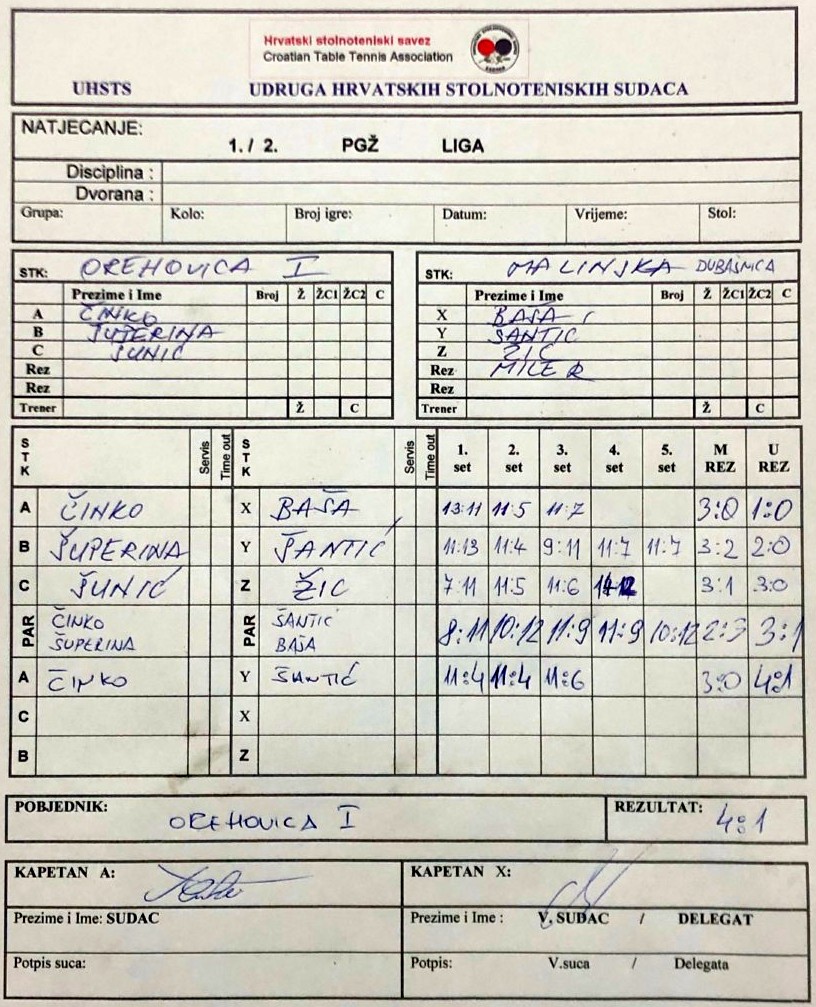 Hrvatski stolnoteniski savez
Croatian Table Tennis Association
UHSTS UDRUGA HRVATSKIH STOLNOTENISKIH SUDACA
NATJECANJE:
1. / 2. PGŽ LIGA
Disciplina :
Dvorana :
Grupa: Kolo: Broj igre: Datum: Vrijeme: Stol:
STK: OREHOVICA I STK: MALINSKA DUBAŠNICA
Prezime i Ime Broj Ž ŽC1 ŽC2 C Prezime i Ime Broj Ž ŽC1 ŽC2 C
A ČINKO X BAŠA
B ŠUPERINA Y ŠANTIĆ
C ŠUNIĆ Z ŽIC
Rez Rez MILER
Rez Rez
Trener Ž C Trener Ž C
STK Servis Time out STK Servis Time out 1. set 2. set 3. set 4. set 5. set M REZ U REZ
A ČINKO X BAŠA 13:11 11:5 11:7 3:0 1:0
B ŠUPERINA Y ŠANTIĆ 11:13 11:4 9:11 11:7 11:7 3:2 2:0
C ŠUNIĆ Z ŽIC 7:11 11:5 11:6 3:1 3:0
PAR ČINKO PAR ŠANTIĆ 8:11 10:12 11:9 11:9 10:12 2:3 3:1
ŠUPERINA BAŠA
A ČINKO Y ŠANTIĆ 11:4 11:4 11:6 3:0 4:1
C X
B Z
POBJEDNIK: OREHOVICA I REZULTAT: 4:1
KAPETAN A: KAPETAN X:
Prezime i Ime: SUDAC Prezime i Ime : V. SUDAC / DELEGAT
Potpis suca: Potpis: V.suca / Delegata